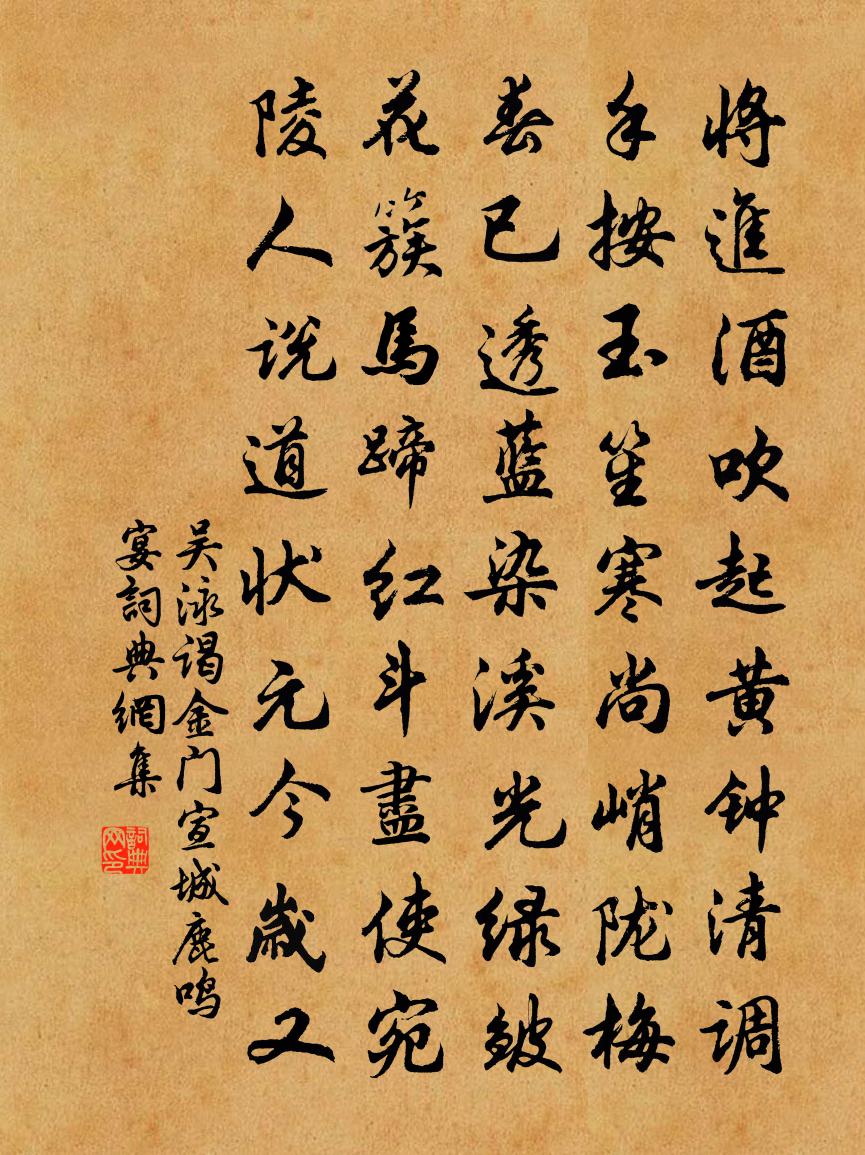 將進酒吹起黄钟清调
手按玉笙寒尚峭陇梅
春已透蓝染溪光绿皱
花簇馬蹄红斗盡使宛
陵人说道状元今歲又
吴泳谒金门宣城鹿鸣
宴詞典網集
詞典网印